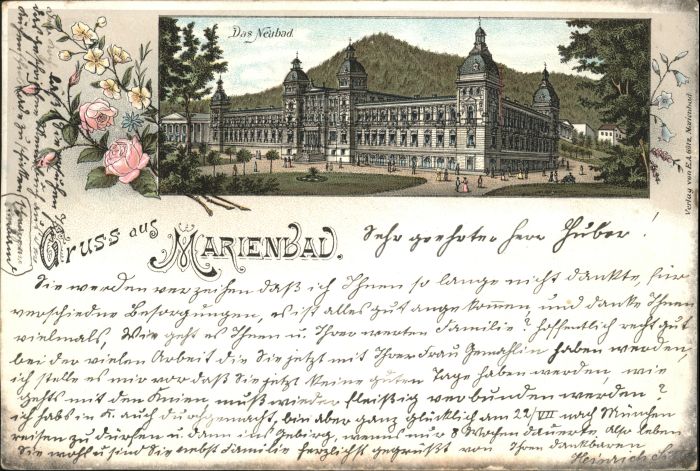 Das Neubad
Gruss aus MARIENBAD.
Verlag von M. Götz, Marienbad.
Sehr geehrter Herr Huber!
Sie werden verzeihen daß ich Ihnen so lange nicht dankte, für
verschiedne Besorgungen, es ist alles gut angekommen, und danke Ihnen
vielmals, Wie geht es Ihnen u. Ihrer werten Familie? hoffentlich recht gut
bei der vielen Arbeit die Sie jetzt mit Ihrer Frau Gemahlin haben werden,
ich stelle es mir vor daß Sie jetzt keine guten Tage haben werden, wie
gehts mit den Knien, muß wieder fleißig verbunden werden?
ich habs in K. auch durchgemacht, bin aber ganz glücklich am 22/VII nach München
reisen zu dürfen u. dann ins Gebirg, wenns nur 8 Wochen dauerte, Also leben
Sie wohl u sind Sie nebst Familie herzlichst gegrüßt von Ihren dankbaren
Heinrich